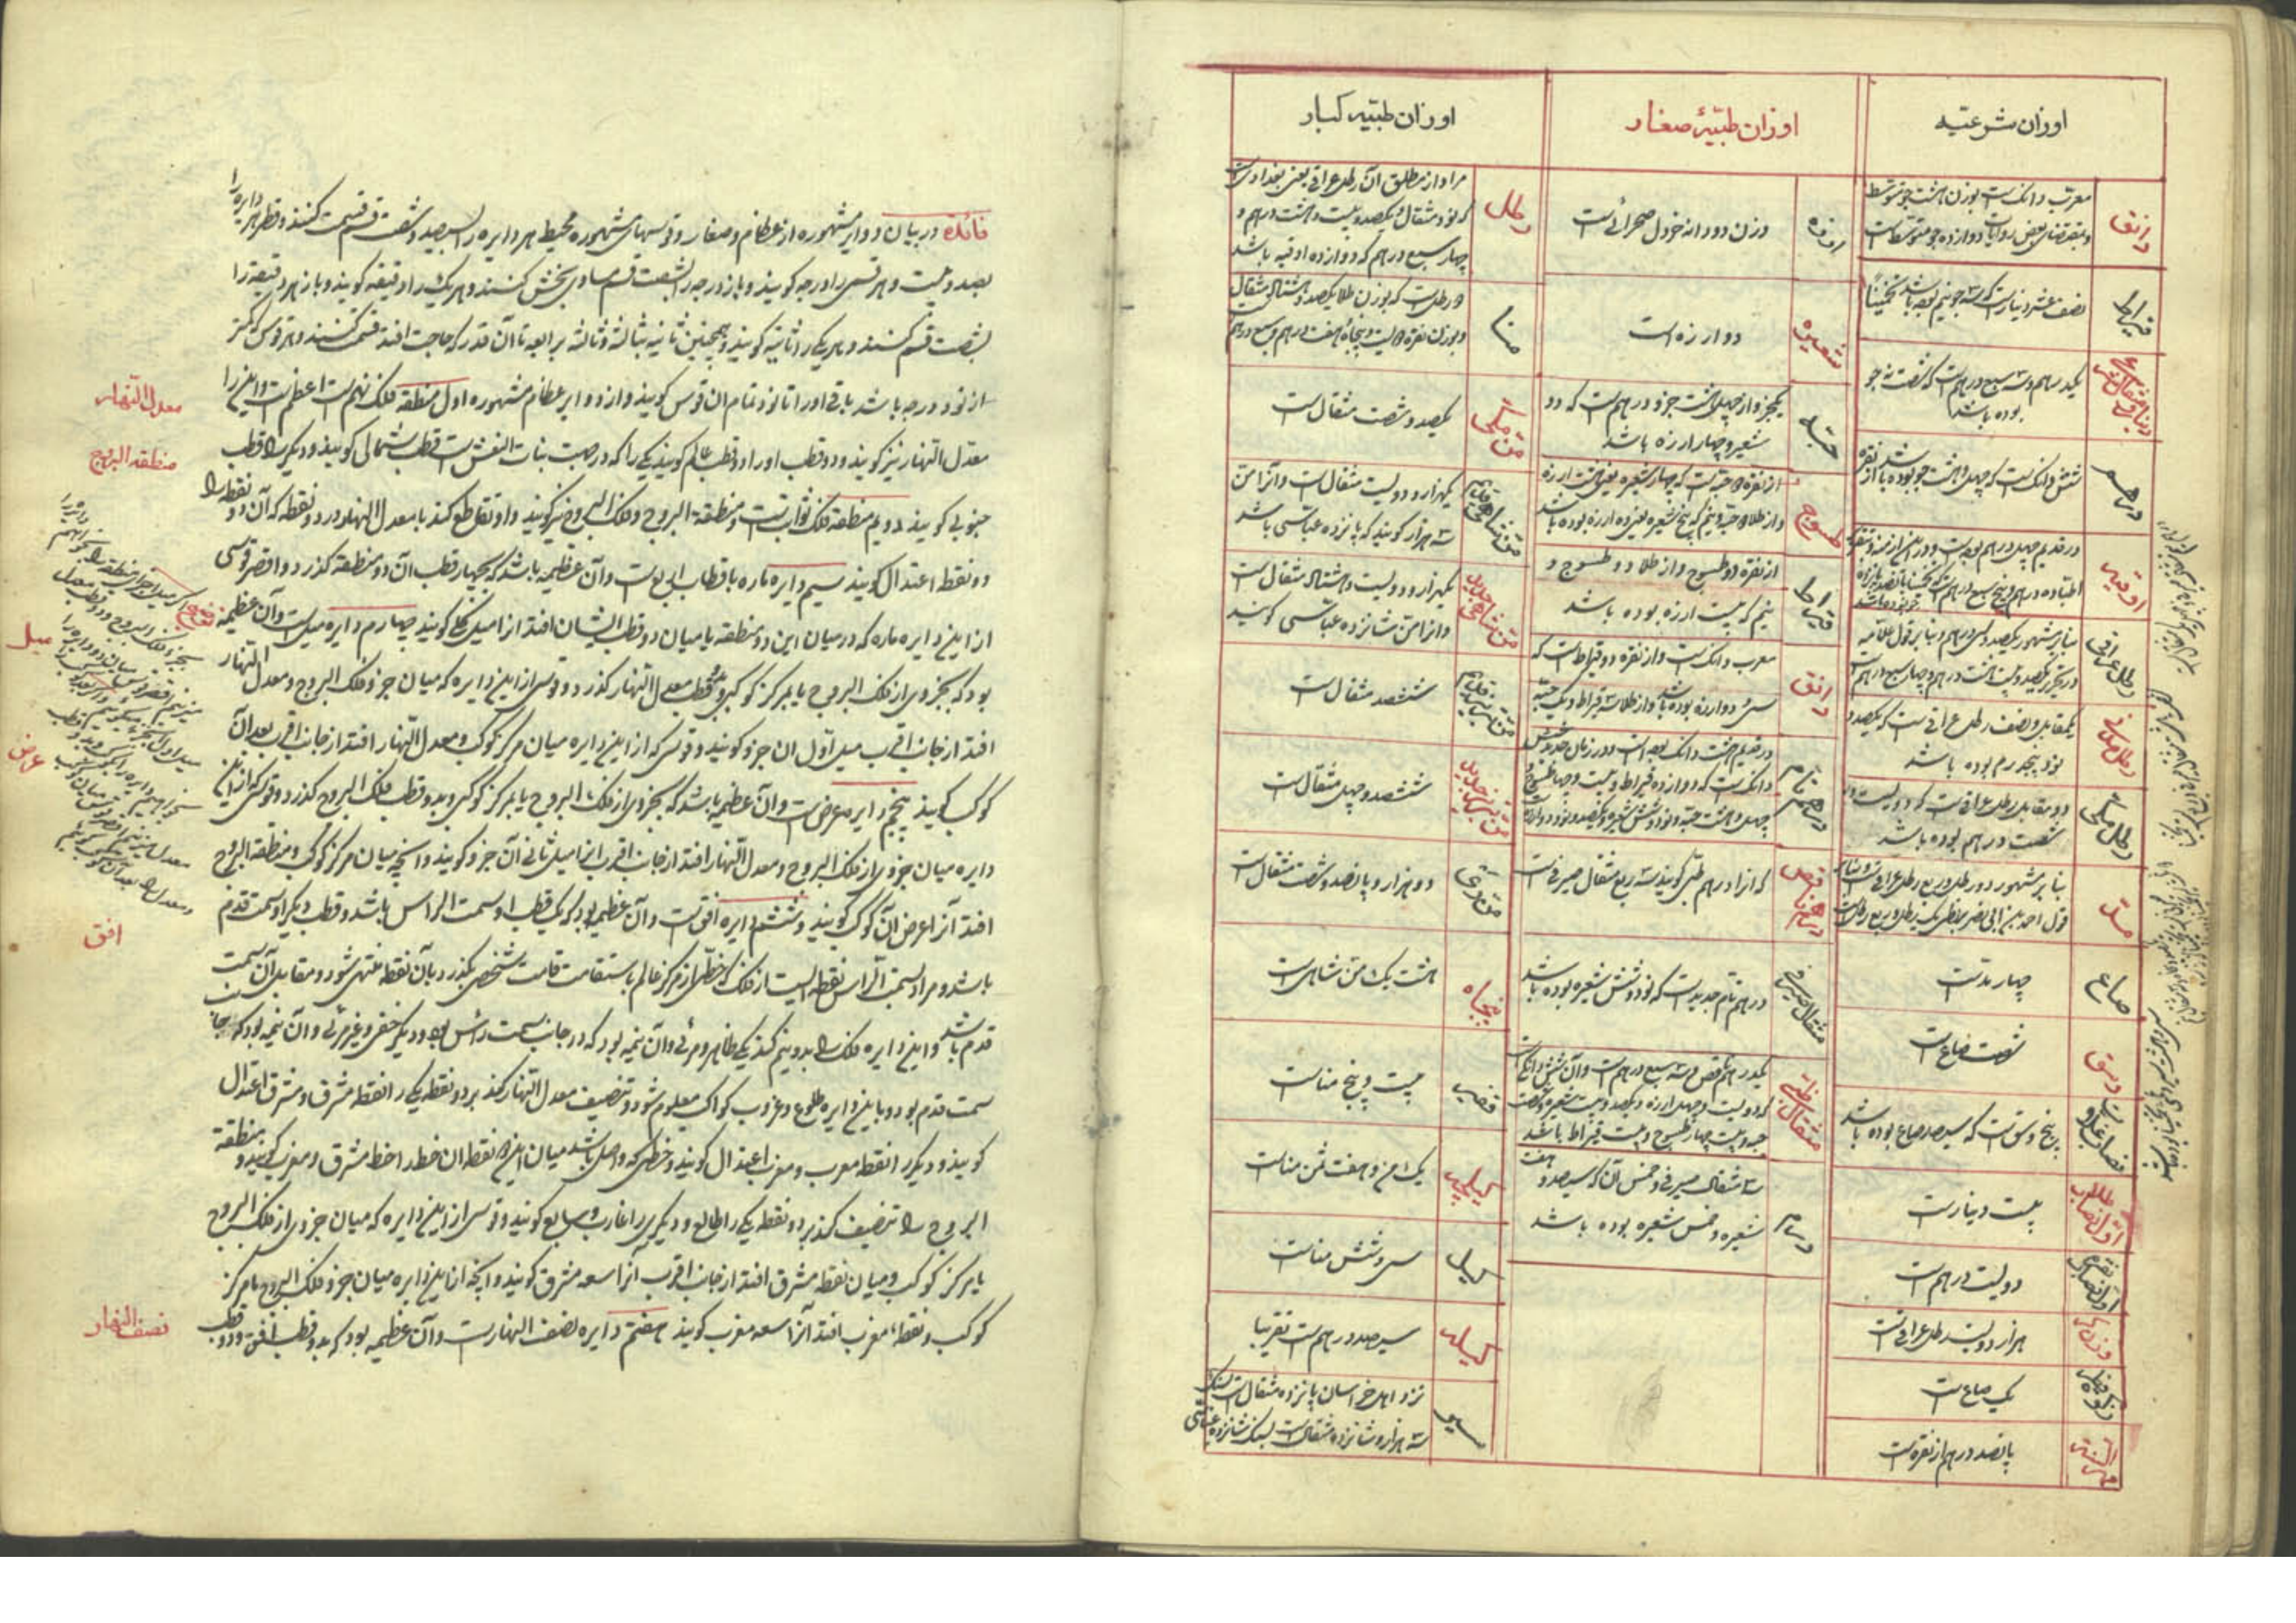 اوزان شرعیه
دانق
معرب دانک است بوزن هشت جو متوسط
و بمقتضای بعض روایات دوازده جو متوسط است
قیراط
نصف عشر دینار است که سه جو نیم بوده باشد تخمیناً
یکدرهم و سه سبع درهم است که شصت نه جو
بوده باشد
درهم
شش دانک است که چهل و هشت جو بوده باشد از نقره
اوقیه
در قدیم چهل درهم بوده است
اطبا ده درهم و پنج سبع درهم است
رطل عراقی
بنابر مشهور یکصد و سی درهم و بنابر قول علامه
در تحریر یکصد و بیست و هشت درهم و چهار سبع درهم است
رطل مدنی
یکمقابل و نصف رطل عراقی است که یکصد و
نود پنجدرم بوده باشد
رطل مکی
دو مقابل رطل عراقی است که دویست و
شصت درهم بوده باشد
مد
بنابر مشهور دو رطل و ربع رطل عراقی است و بنابر
قول احمد بن ابی نصر بزنطی یک رطل و ربع رطل است
صاع
چهار مد است
وسق
شصت صاع است
نصاب غلات
پنج وسق است که سیصد صاع بوده باشد
اول نصاب طلا
بیست دینار است
اول نصاب نقره
دویست درهم است
وزن کر
هزار دویست رطل عراقی است
زکوة فطره
یک صاع است
مهر السنه
پانصد درهم از نقره است
اوزان طبیهٔ صغار
ارزه
وزن دو دانه خردل صحرائی است
شعیره
دو ارزه است
حبه
یکجزو از چهل و هشت جزو درهم است که دو
شعیر و چهار ارزه باشد
طسوج
از نقره دو حبه است که چهار شعیره یعنی هشت ارزه
و از طلا دو حبه و نیم که پنج شعیره یعنی ده ارزه بوده باشد
قیراط
از نقره دو طسوج و از طلا دو طسوج و
نیم که بیست ارزه بوده باشد
دانق
معرب دانک است و از نقره دو قیراط است که
سی و دو ارزه بوده باشد و از طلا سه قیراط و یک حبه
درهم تام
در قدیم هشت دانک بوده است و در زمان جدید شش
دانک است که دوازده قیراط و بیست و چهار طسوج و
چهل و هشت حبه و نود و شش شعیره و یکصد و نود و دو ارزه است
درهم ناقص
که آنرا درهم طبی کویند سه ربع مثقال صیرفی است
مثقال صیرفی
درهم تام جدید است که نود و شش شعیره بوده باشد
یکدرهم ناقص و سه سبع درهم است و آن شش دانک است
که دویست و چهل ارزه و یکصد و بیست شعیره و شصت
حبه و بیست چهار طسوج و بیست قیراط باشد
سه مثقال صیرفی و خمس آن که سیصد و هفت
شعیره و خمس شعیره بوده باشد
اوزان طبیه کبار
رطل
مراد از مطلق آن رطل عراقی یعنی بغدادی است
که نود مثقال و یکصد و بیست و هشت درهم و
چهار سبع درهم که دوازده اوقیه باشد
منا
دو رطل است که بوزن طلا یکصد و هشتاد مثقال
و بوزن نقره دویست و پنجاه و هفت درهم و سبع درهم
من مکی
یکصد و شصت مثقال است
من شاهی قدیم
یکهزار و دویست مثقال است و آنرا من
سه هزار کویند که پانزده عباسی باشد
من شاهی جدید
یکهزار و دویست و هشتاد مثقال است
و آنرا من شانزده عباسی کویند
من تبریزی قدیم
ششصد مثقال است
من تبریزی جدید
ششصد و چهل مثقال است
من ری
دو هزار و پانصد و شصت مثقال است
پنجاه
هشت یک من شاهی است
قفیز
بیست و پنج منا است
کیلجه
یک من و هفت ثمن منا است
کیل
سی و شش منا است
کیله
سیصد درهم است تقریبا
سیر
نزد اهل خراسان پانزده مثقال است بسنک
سه هزار و شانزده مثقال است بسنک شانزده عباسی
فائدة در بیان دوایر مشهوره از عظام و صغار و قوسهای مشهوره محیط هر دایره را سیصد و شصت قسم قسمت کنند و قطر هر دایره را
بصد و بیست و هر قسمی را درجه کویند و باز درجه را بشصت قسم مساوی بخش کنند و هر یک را دقیقه کویند و باز هر دقیقه را
بشصت قسم کنند و هر یکی را ثانیه کویند و همچنین ثانیه بثالثه و ثالثه برابعه تا آن قدر که حاجت افتد قسمت کنند و هر قوس کمتر
از نود درجه باشد باقی او را تا نود تمام ان قوس کویند و از دوایر عظام مشهوره اول منطقه فلک نهم است اعظم است و این را
معدل النهار نیز کویند و دو قطب او را دو قطب عالم کویند یکی را که در جهت بنات النعش است قطب شمالی کویند و دیکری را قطب
جنوبی کویند دویم منطقه فلک ثوابت است و منطقة البروج و فلک البروج نیز کویند و او تقاطع کند با معدل النهار در دو نقطه که آن دو نقطه را
دو نقطه اعتدال کویند سیم دایره ماره باقطاب اربعه است و آن عظیمه باشد که بچهار قطب آن دو منطقه کذرد و اقصر قوسی
از این دایره ماره که در میان این دو منطقه یا میان دو قطب ایشان افتد انرا میل کلی کویند چهارم دایره میل است و آن عظیمه
بود که بجزوی از فلک البروج یا بمرکز کوکبی و بدو قطب معدل النهار کذرد و قوسی از این دایره که میان جزو فلک البروج و معدل النهار
افتد از جانب اقرب میل اول ان جزو کویند و قوسی که از این دایره میان مرکز کوکب و معدل النهار افتد از جانب اقرب بعد آن
کوکب کویند پنجم دایره عرض است و آن عظیمه باشد که بجزوی از فلک البروج یا بمرکز کوکبی و بدو قطب فلک البروج کذرد و قوسی که از این
دایره میان جزوی از فلک البروج و معدل النهار افتد از جانب اقرب انرا میل ثانی آن جزو کویند و انچه میان مرکز کوکب و منطقة البروج
افتد آنرا عرض آن کوکب کویند و ششم دایره افق است و آن عظیمه بود که یک قطب او سمت الراس باشد و قطب دیکر او سمت قدم
باشد و مراد بسمت الراس نقطه ایست از فلک که خطی از مرکز عالم باستقامت قامت شخص بکذرد بآن نقطه منتهی شود و مقابل آن سمت
قدم باشد و این دایره فلک را بدو نیم کند یکی ظاهر و مرئی و آن نیمه بود که در جانب سمت راس بود و دیکر خفی و غیر مرئی و آن نیمه بود که بجانب
سمت قدم بود و باین دایره طلوع و غروب کواکب معلوم شود و تنصیف معدل النهار کند بر دو نقطه یکی را نقطه مشرق و مشرق اعتدال
کویند و دیکر را نقطه مغرب و مغرب اعتدال کویند و خطی که واصل باشد میان این دو نقطه ان خط را خط مشرق و مغرب کویند و منطقة
البروج را تنصیف کند بر دو نقطه یکی را طالع و دیکری را غارب و سابع کویند و قوسی از این دایره که میان جزوی از فلک البروج
یا مرکز کوکب و میان نقطه مشرق افتد از جانب اقرب آنرا سعه مشرق کویند و انچه از این دایره میان جزو فلک البروج یا مرکز
کوکب و نقطه مغرب افتد آنرا سعه مغرب کویند هفتم دایره نصف النهار است و آن عظیمه بود که بدو قطب افق و دو قطب
معدل النهار
منطقه البروج
میل
عرض
افق
نصف النهار